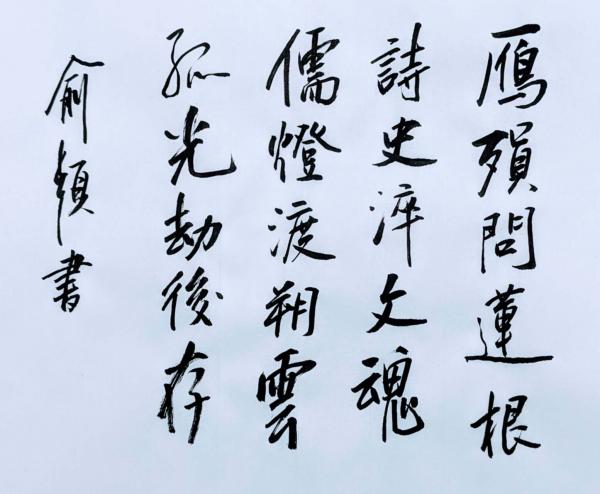 鴈殞問蓮根
詩史淬文魂
儒燈渡朔雲
孤光劫後存
俞頻書